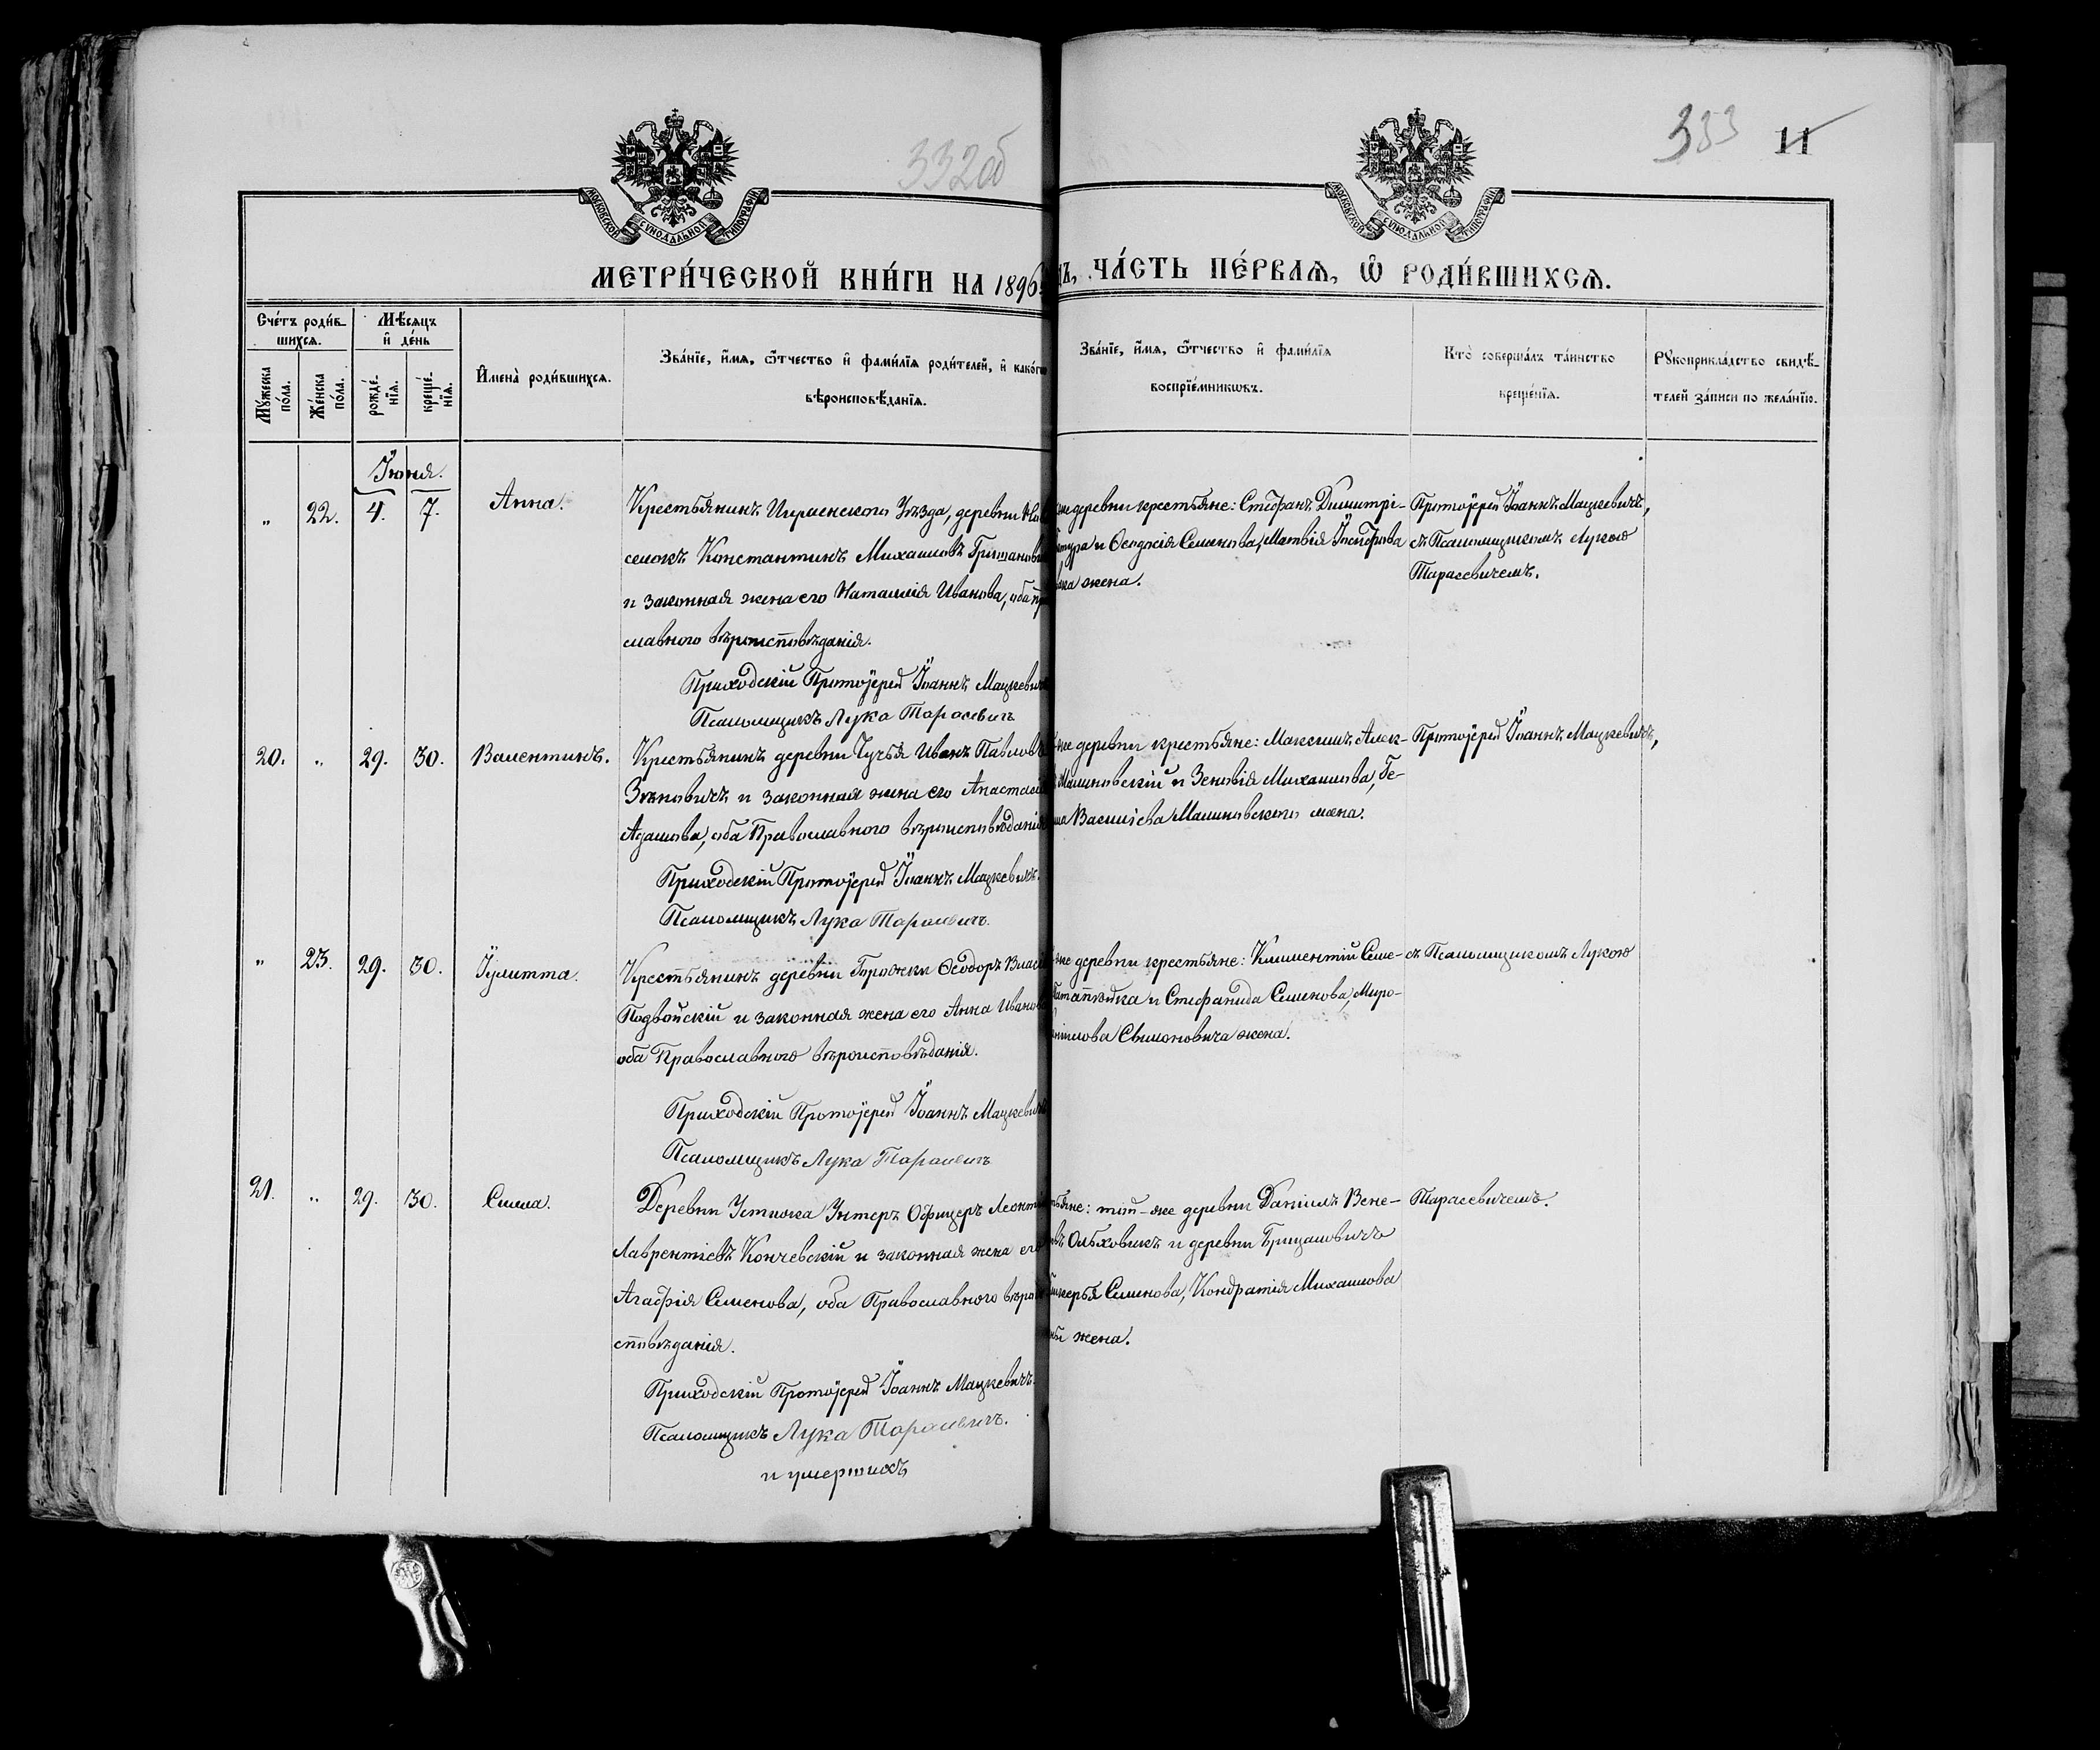 332об
333
11
МОСКОВСКОЙ СУНОДАЛЬНОЙ ТИПОГРАФІИ
МОСКОВСКОЙ СУНОДАЛЬНОЙ ТИПОГРАФІИ
МЕТРИ́ЧЕСКОЙ КНИ́ГИ НА 1896
ЧА́СТЬ ПЕ́РВАѦ, Ѿ РОДИ́ВШИХСѦ.
Сче́тъ роди́в-
шихсѧ.
Мѣ́сѧцъ
и҆ де́нь
Мꙋ́жеска по́ла.
Же́нска по́ла.
рожде́-
нїѧ.
креще́-
нїѧ.
И҆мена̀ роди́вшихсѧ.
Зва́нїе, и҆́мѧ, ѻ҆́тчество и҆ фами́лїѧ роди́телей, и҆ како́гѡ
вѣроисповѣ́данїѧ.
Зва́нїе, и҆́мѧ, ѻ҆́тчество и҆ фами́лїѧ
воспрїе́мникѡвъ.
Кто̀ соверша́лъ та́инство
креще́нїѧ.
Рꙋкоприкла́дство свидѣ́-
телей за́писи по жела́нїю.
Іюня.
" 22. 4. 7. Анна.
Крестьянинъ Игуменскаго Уѣзда, деревни
селокъ Константинъ Михаиловъ
и законная жена его Наталлія Иванова, оба
славного вѣроисповѣданія.
Приходскій Протоіерей Іоаннъ Мацкевичъ
Псаломщикъ Лука Тарасевичъ
деревни крестьяне: Стефанъ Димитрі-
и Ѳеодосія Семенова, Матвія Іосифова
жена.
Протоіерей Іоаннъ Мацкевичъ,
съ Псаломщикомъ Лукою
Тарасевичемъ.
20. " 29. 30. Валентинъ.
Крестьянинъ деревни Чучья Иванъ Павловъ
Зѣновичъ и законная жена его Анастасія
Адамова, оба Православного вѣроисповѣданія
Приходскій Протоіерей Іоаннъ Мацкевичъ.
Псаломщикъ Лука Тарасевичъ.
же деревни крестьяне: Максимъ Алек-
Малиновскій и Зеновія Михаилова, Ге-
Василіева Малиновскаго жена.
Протоіерей Іоаннъ Мацкевичъ,
" 23. 29. 30. Іулитта.
Крестьянинъ деревни Горожки Ѳеодоръ
Подвойскій и законная жена его Анна Иванова
оба Православного вѣроисповѣданія.
Приходскій Протоіерей Іоаннъ Мацкевичъ
Псаломщикъ Лука Тарасевичъ
же деревни крестьяне: Климентій Семе-
и Стефанида Семенова, Миро-
жена.
съ Псаломщикомъ Лукою
21. " 29. 30. Симеа.
Деревни Устижа Унтеръ Офицеръ Леонтій
Лаврентіевъ Кончевскій и законная жена его
Агафія Семенова, оба Православного вѣро-
исповѣданія.
Приходскій Протоіерей Іоаннъ Мацкевичъ.
Псаломщикъ Лука Тарасевичъ.
и умершихъ
той-же деревни Даніилъ Вене-
Ольховикъ и деревни
Семенова, Кондратія Михаилова
жена.
Тарасевичемъ.